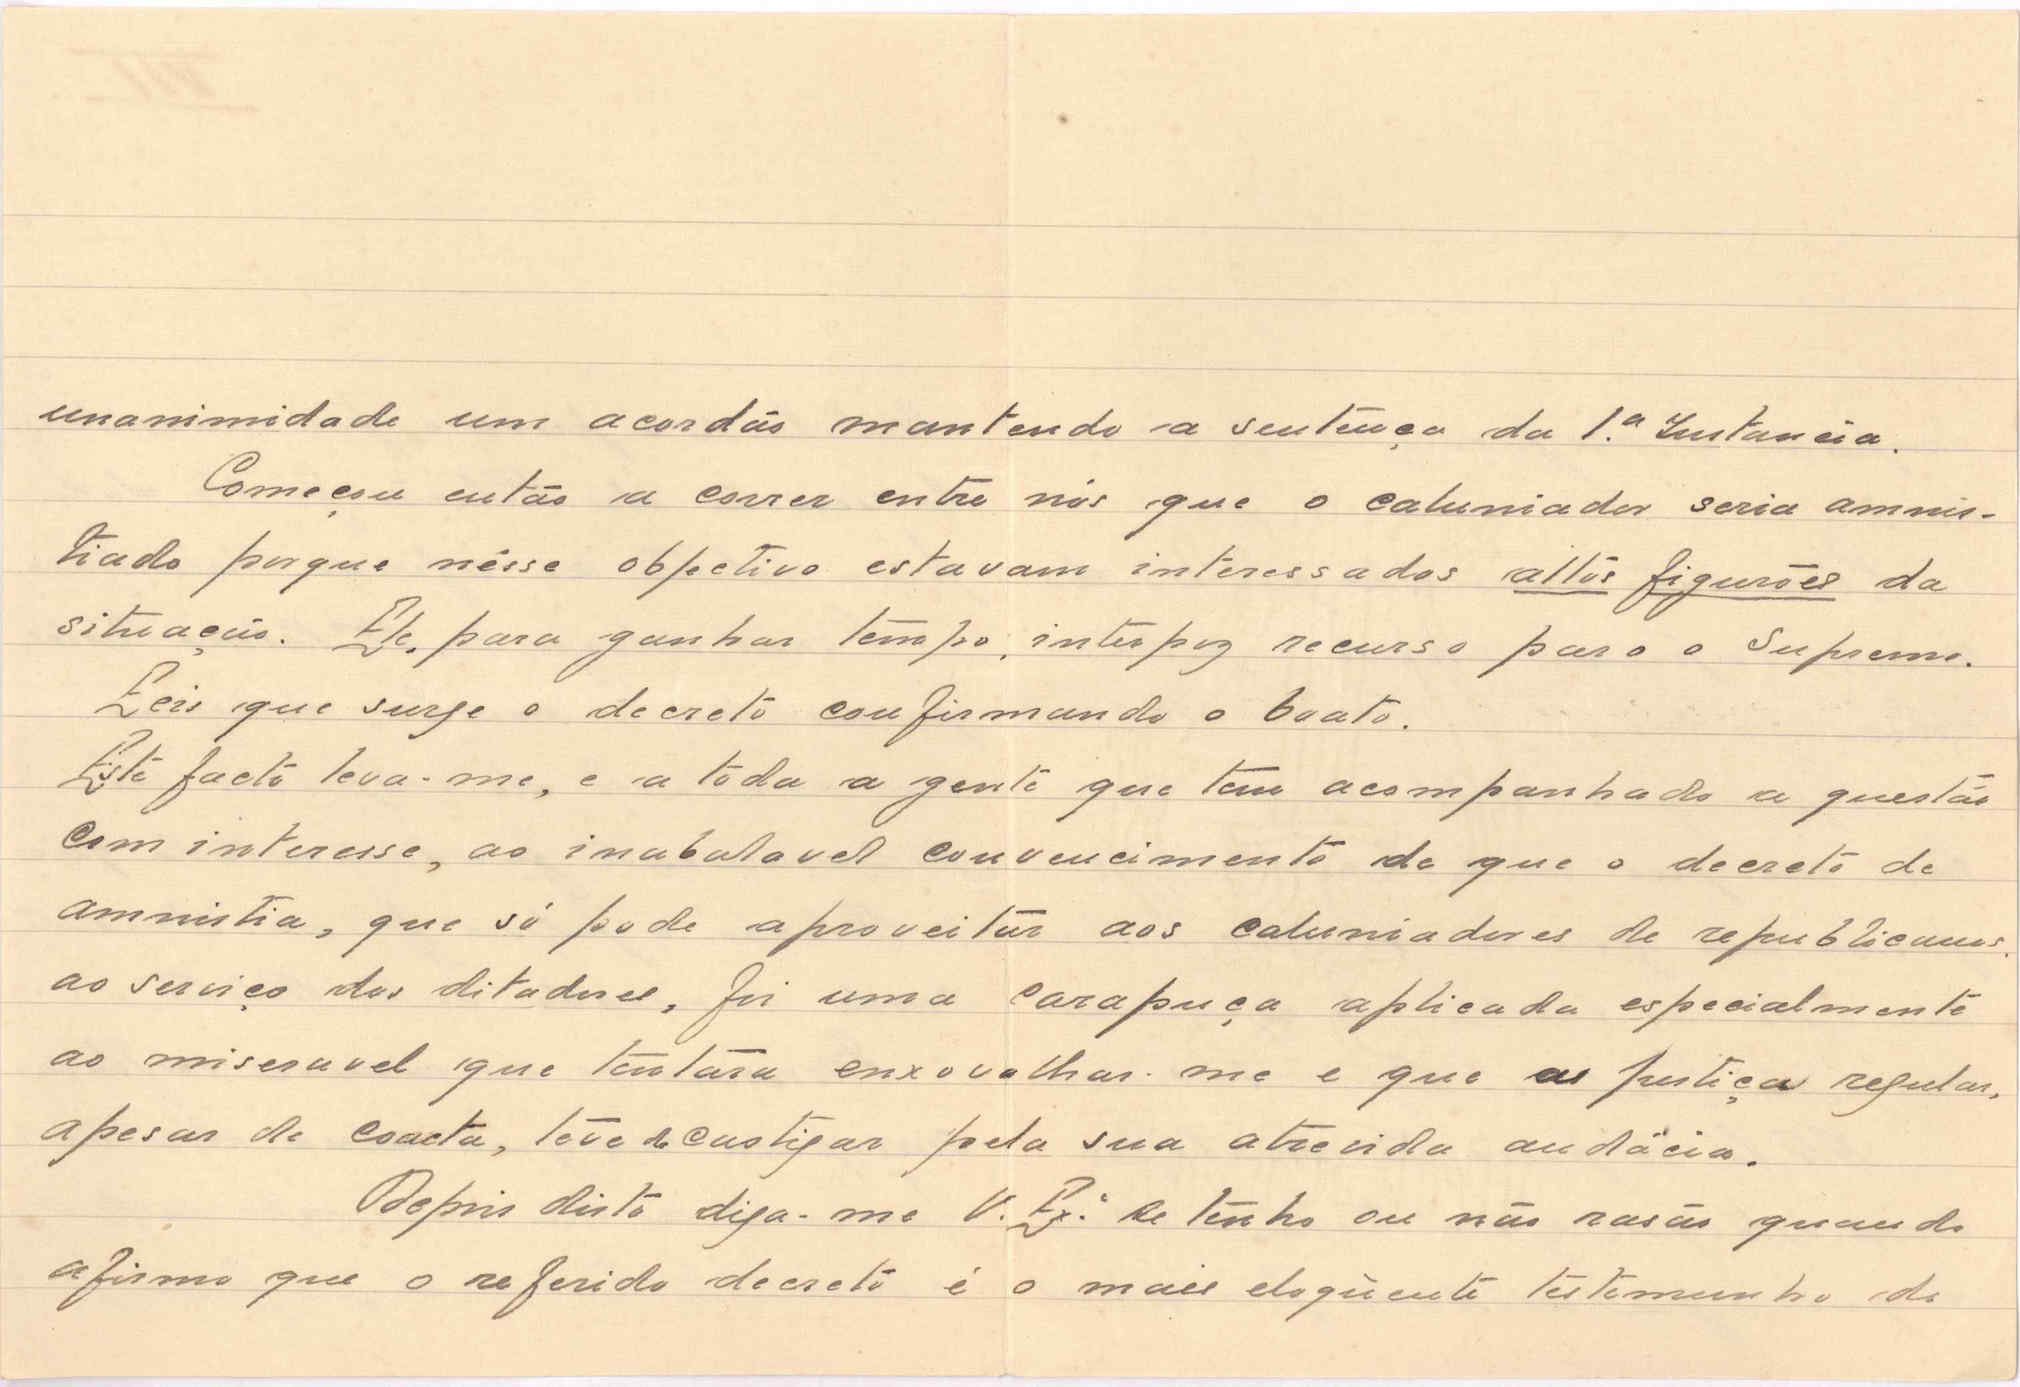 unanimidade um acordão mantendo a sentença da 1.ª Instancia.
Começou então a correr entre nós que o caluniador seria amnis-
tiado porque nêsse objectivo estavam interessados altos figurões da
situação. Ele, para ganhar tempo, interpoz recurso para o Supremo.
Eeis que surge o decreto confirmando o boato.
Este facto leva-me, e a toda a gente que tem acompanhado a questão
com interesse, ao inabalavel convencimento de que o decreto de
amnistia, que só pode aproveitar aos caluniadores de republicanos
ao serviço dos ditadores, foi uma carapuça aplicada especialmente
ao miseravel que tentára enxovalhar-me e que a justiça regular,
apesar de coacta, teve de castigar pela sua atrevida audácia.
Depois disto diga-me V. Ex.ª se tenho ou não rasão quando
afirmo que o referido decreto é o mais eloqùente testemunho do